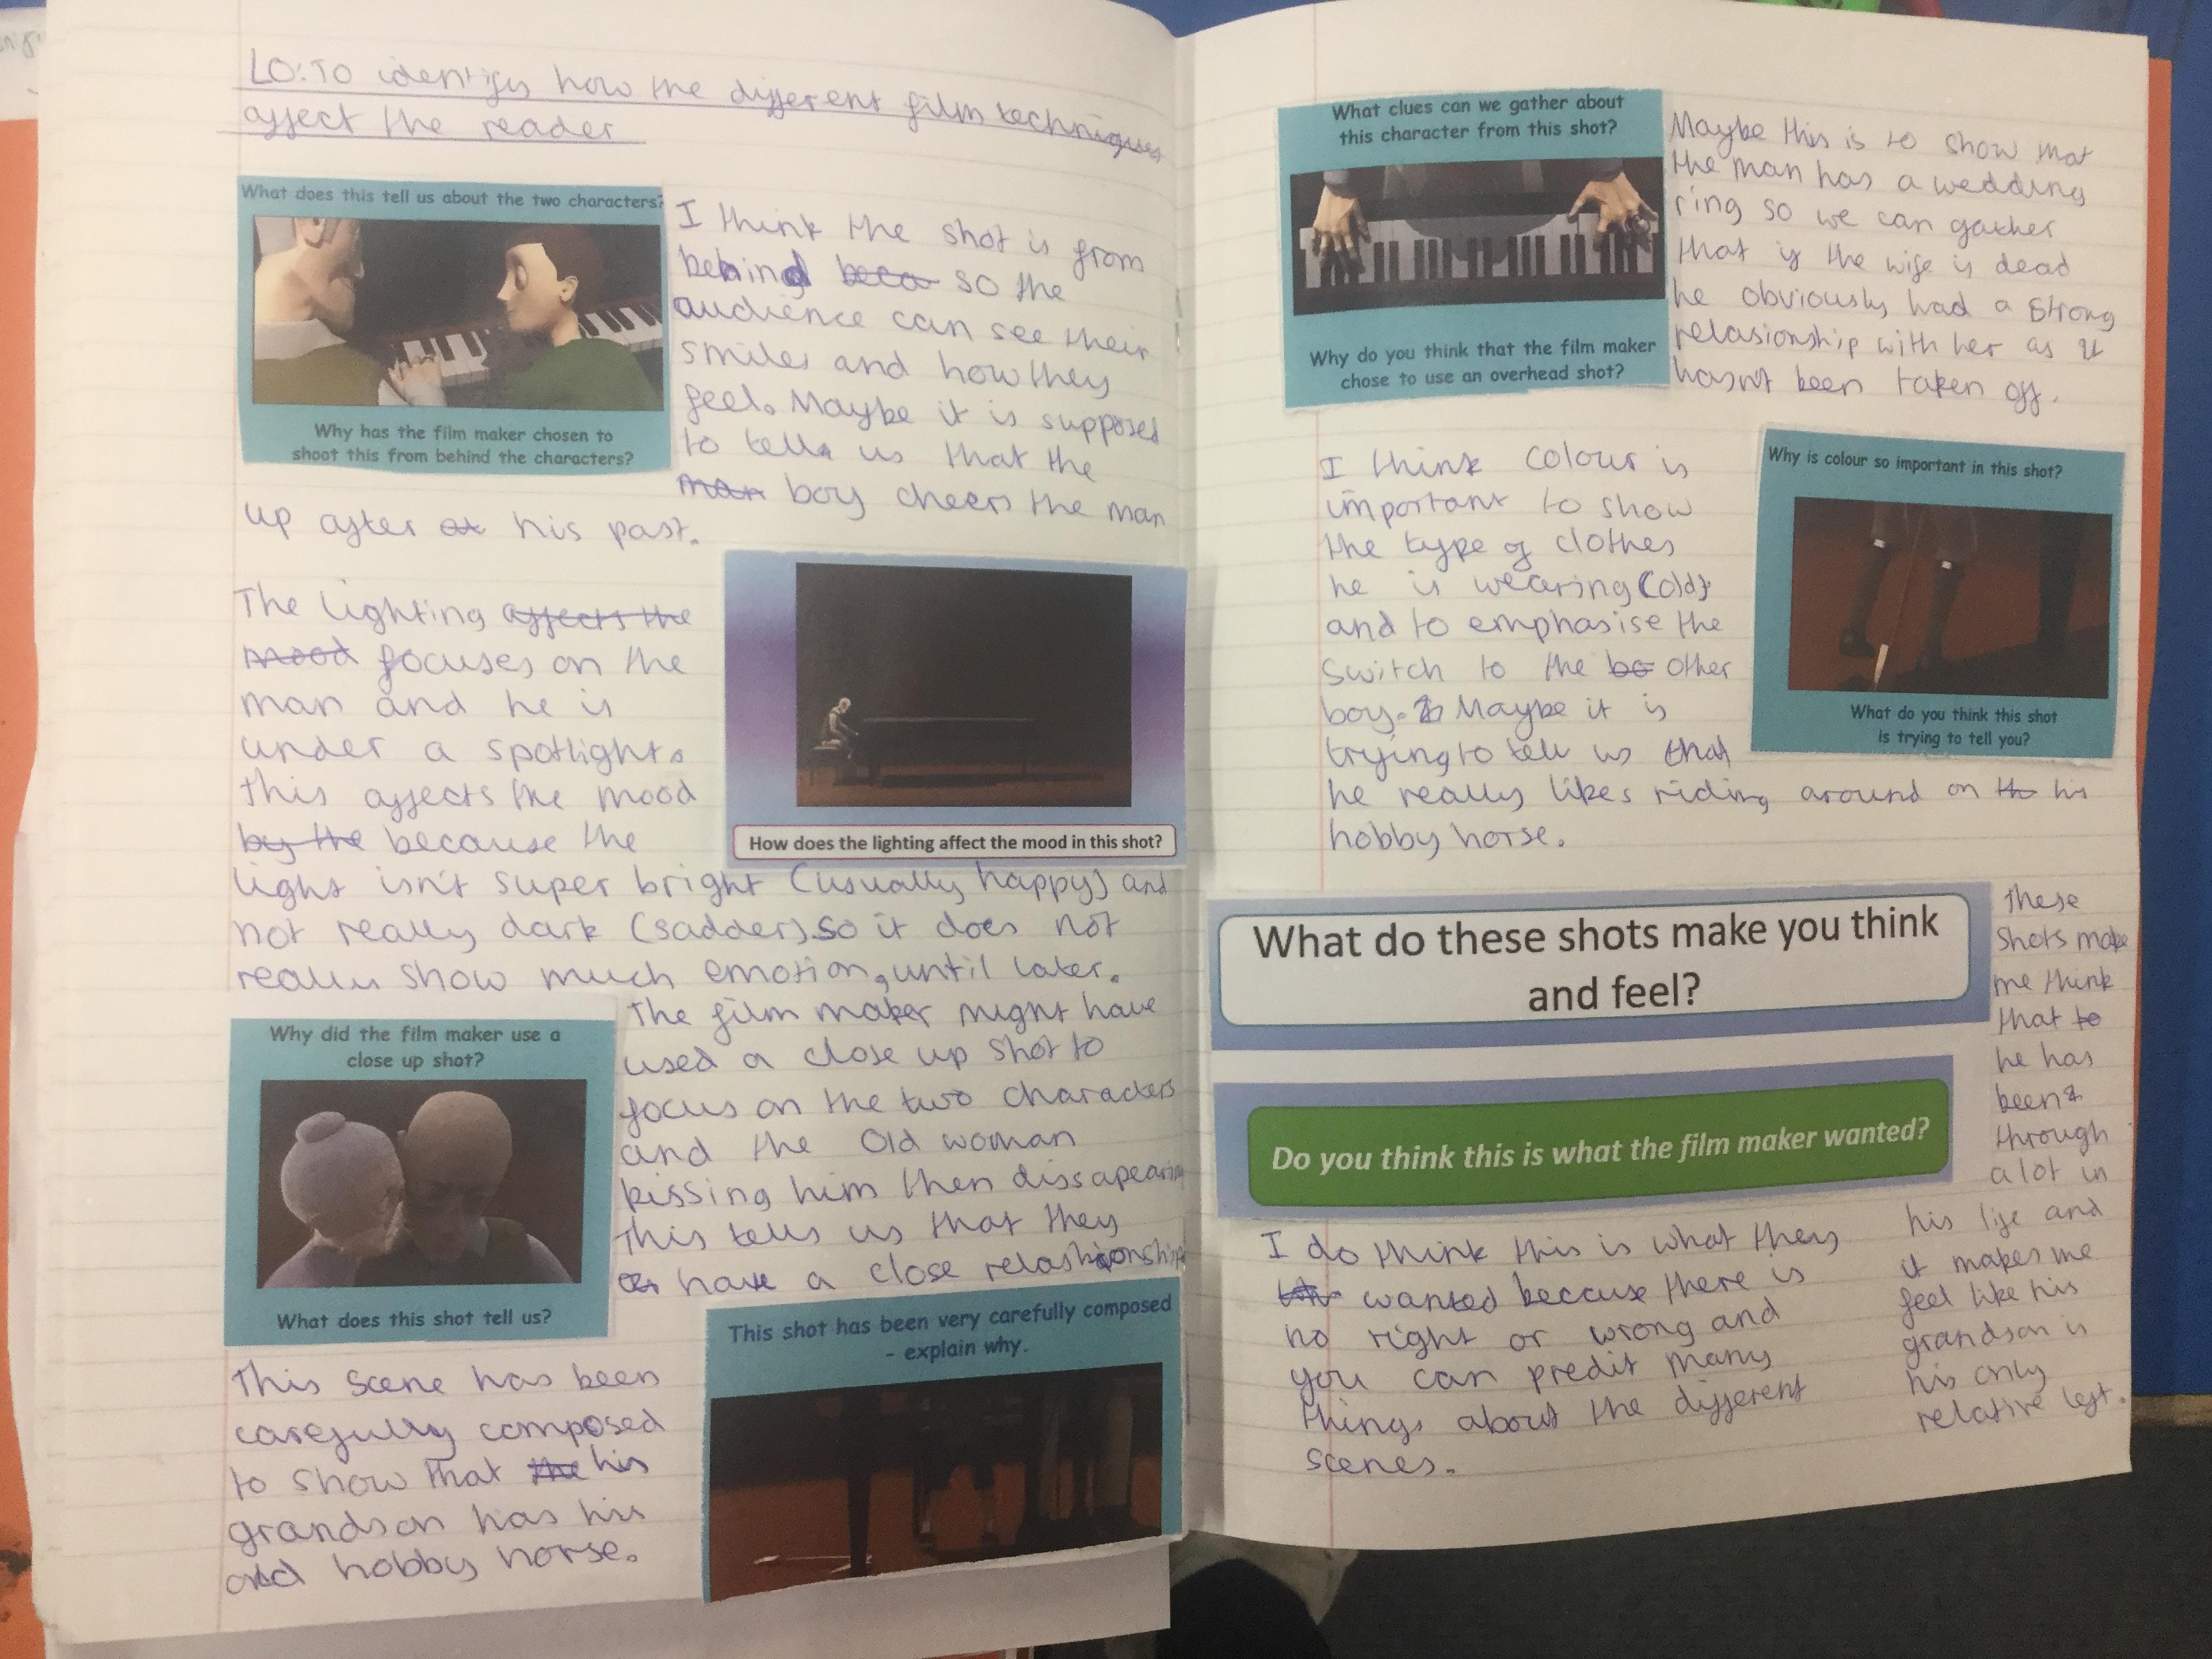 LO: To identify how the different film techniques
affect the reader
What does this tell us about the two characters?
Why has the film maker chosen to
shoot this from behind the characters?
I think the shot is from
behind beca so the
audience can see their
smiles and how they
feel. Maybe it is supposed
to tell us that the
man boy cheers the man
up after at his past.
The lighting affects the
mood focuses on the
man and he is
under a spotlight.
this affects the mood
by the because the
light isn't super bright (usually happy) and
not really dark (sadder) so it does not
really show much emotion, until later.
How does the lighting affect the mood in this shot?
Why did the film maker use a
close up shot?
What does this shot tell us?
The film maker might have
used a close up shot to
focus on the two characters
and the old woman
kissing him then dissapearing
this tells us that they
have a close relashionship
This shot has been very carefully composed
- explain why.
This scene has been
carefully composed
to show that the his
grandson has his
old hobby horse.
What clues can we gather about
this character from this shot?
Why do you think that the film maker
chose to use an overhead shot?
Maybe this is to show that
the man has a wedding
ring so we can gather
that if the wife is dead
he obviously had a strong
relasionship with her as it
hasn't been taken off.
I think colour is
important to show
the type of clothes
he is wearing (old)
and to emphasise the
switch to the bo other
boy. Maybe it is
trying to tell us that
he really likes riding around on th his
hobby horse.
Why is colour so important in this shot?
What do you think this shot
is trying to tell you?
What do these shots make you think
and feel?
these
shots make
me think
that to
he has
been
through
a lot in
his life and
it makes me
feel like his
grandson is
his only
relative left.
Do you think this is what the film maker wanted?
I do think this is what they
wanted because there is
no right or wrong and
you can predit many
things about the different
scenes.